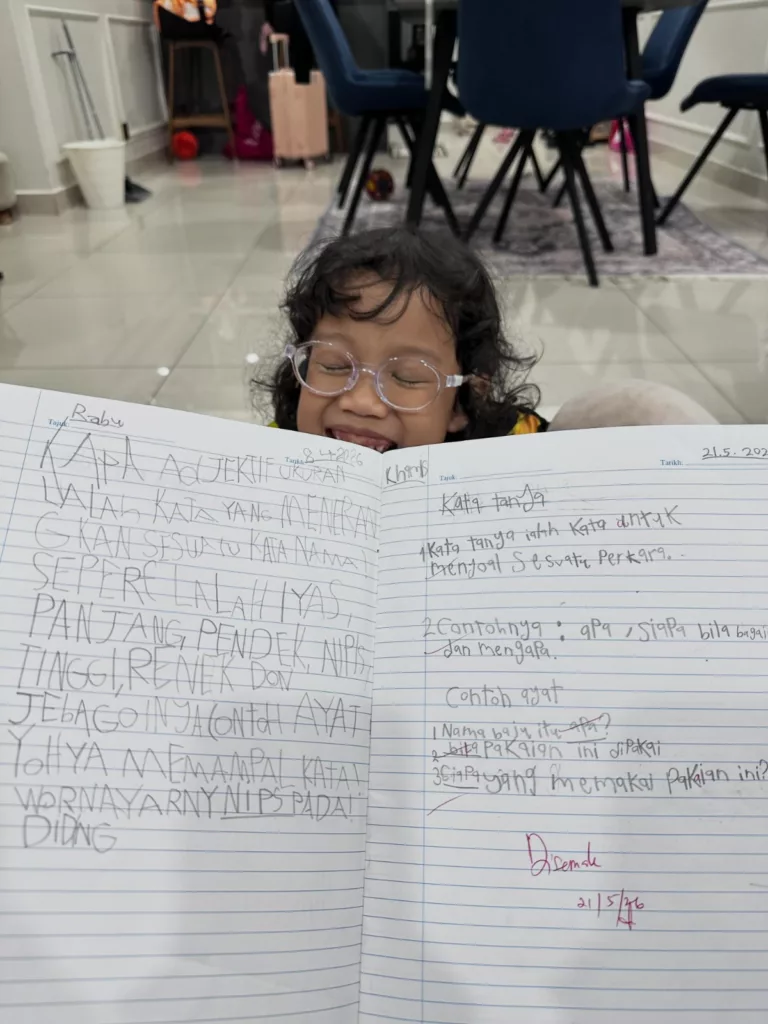 Tajuk: Rabu
Tarikh: 8.4.2026
KAPA ADJEKTIF UKURAN
IALAH KATA YANG MENERAN
GKAN SESUATU KATA NAMA
SEPERE LALAH IYAS,
PANJANG, PENDEK, NIPIS,
TINGGI, RENEK DON
JEbAGOINYA CONtOH AYAT
YOHYA MEMAMPAL KATA
WORNAYARNY NIPS PADA
DIDNG
Khamis
Tajuk:
Tarikh: 21.5.202
Kata tanya
1. Kata tanya ialh Kata untuk
menyoal Sesuatu Perkara.
2. Contohnya : apa, siapa bila bagai
dan mengapa.
Contoh ayat
1 Nama baju itu apa?
2 bila PaKaian ini dipakai
3 Siapa yang memakai paKaian ini?
Disemak
21/5/26